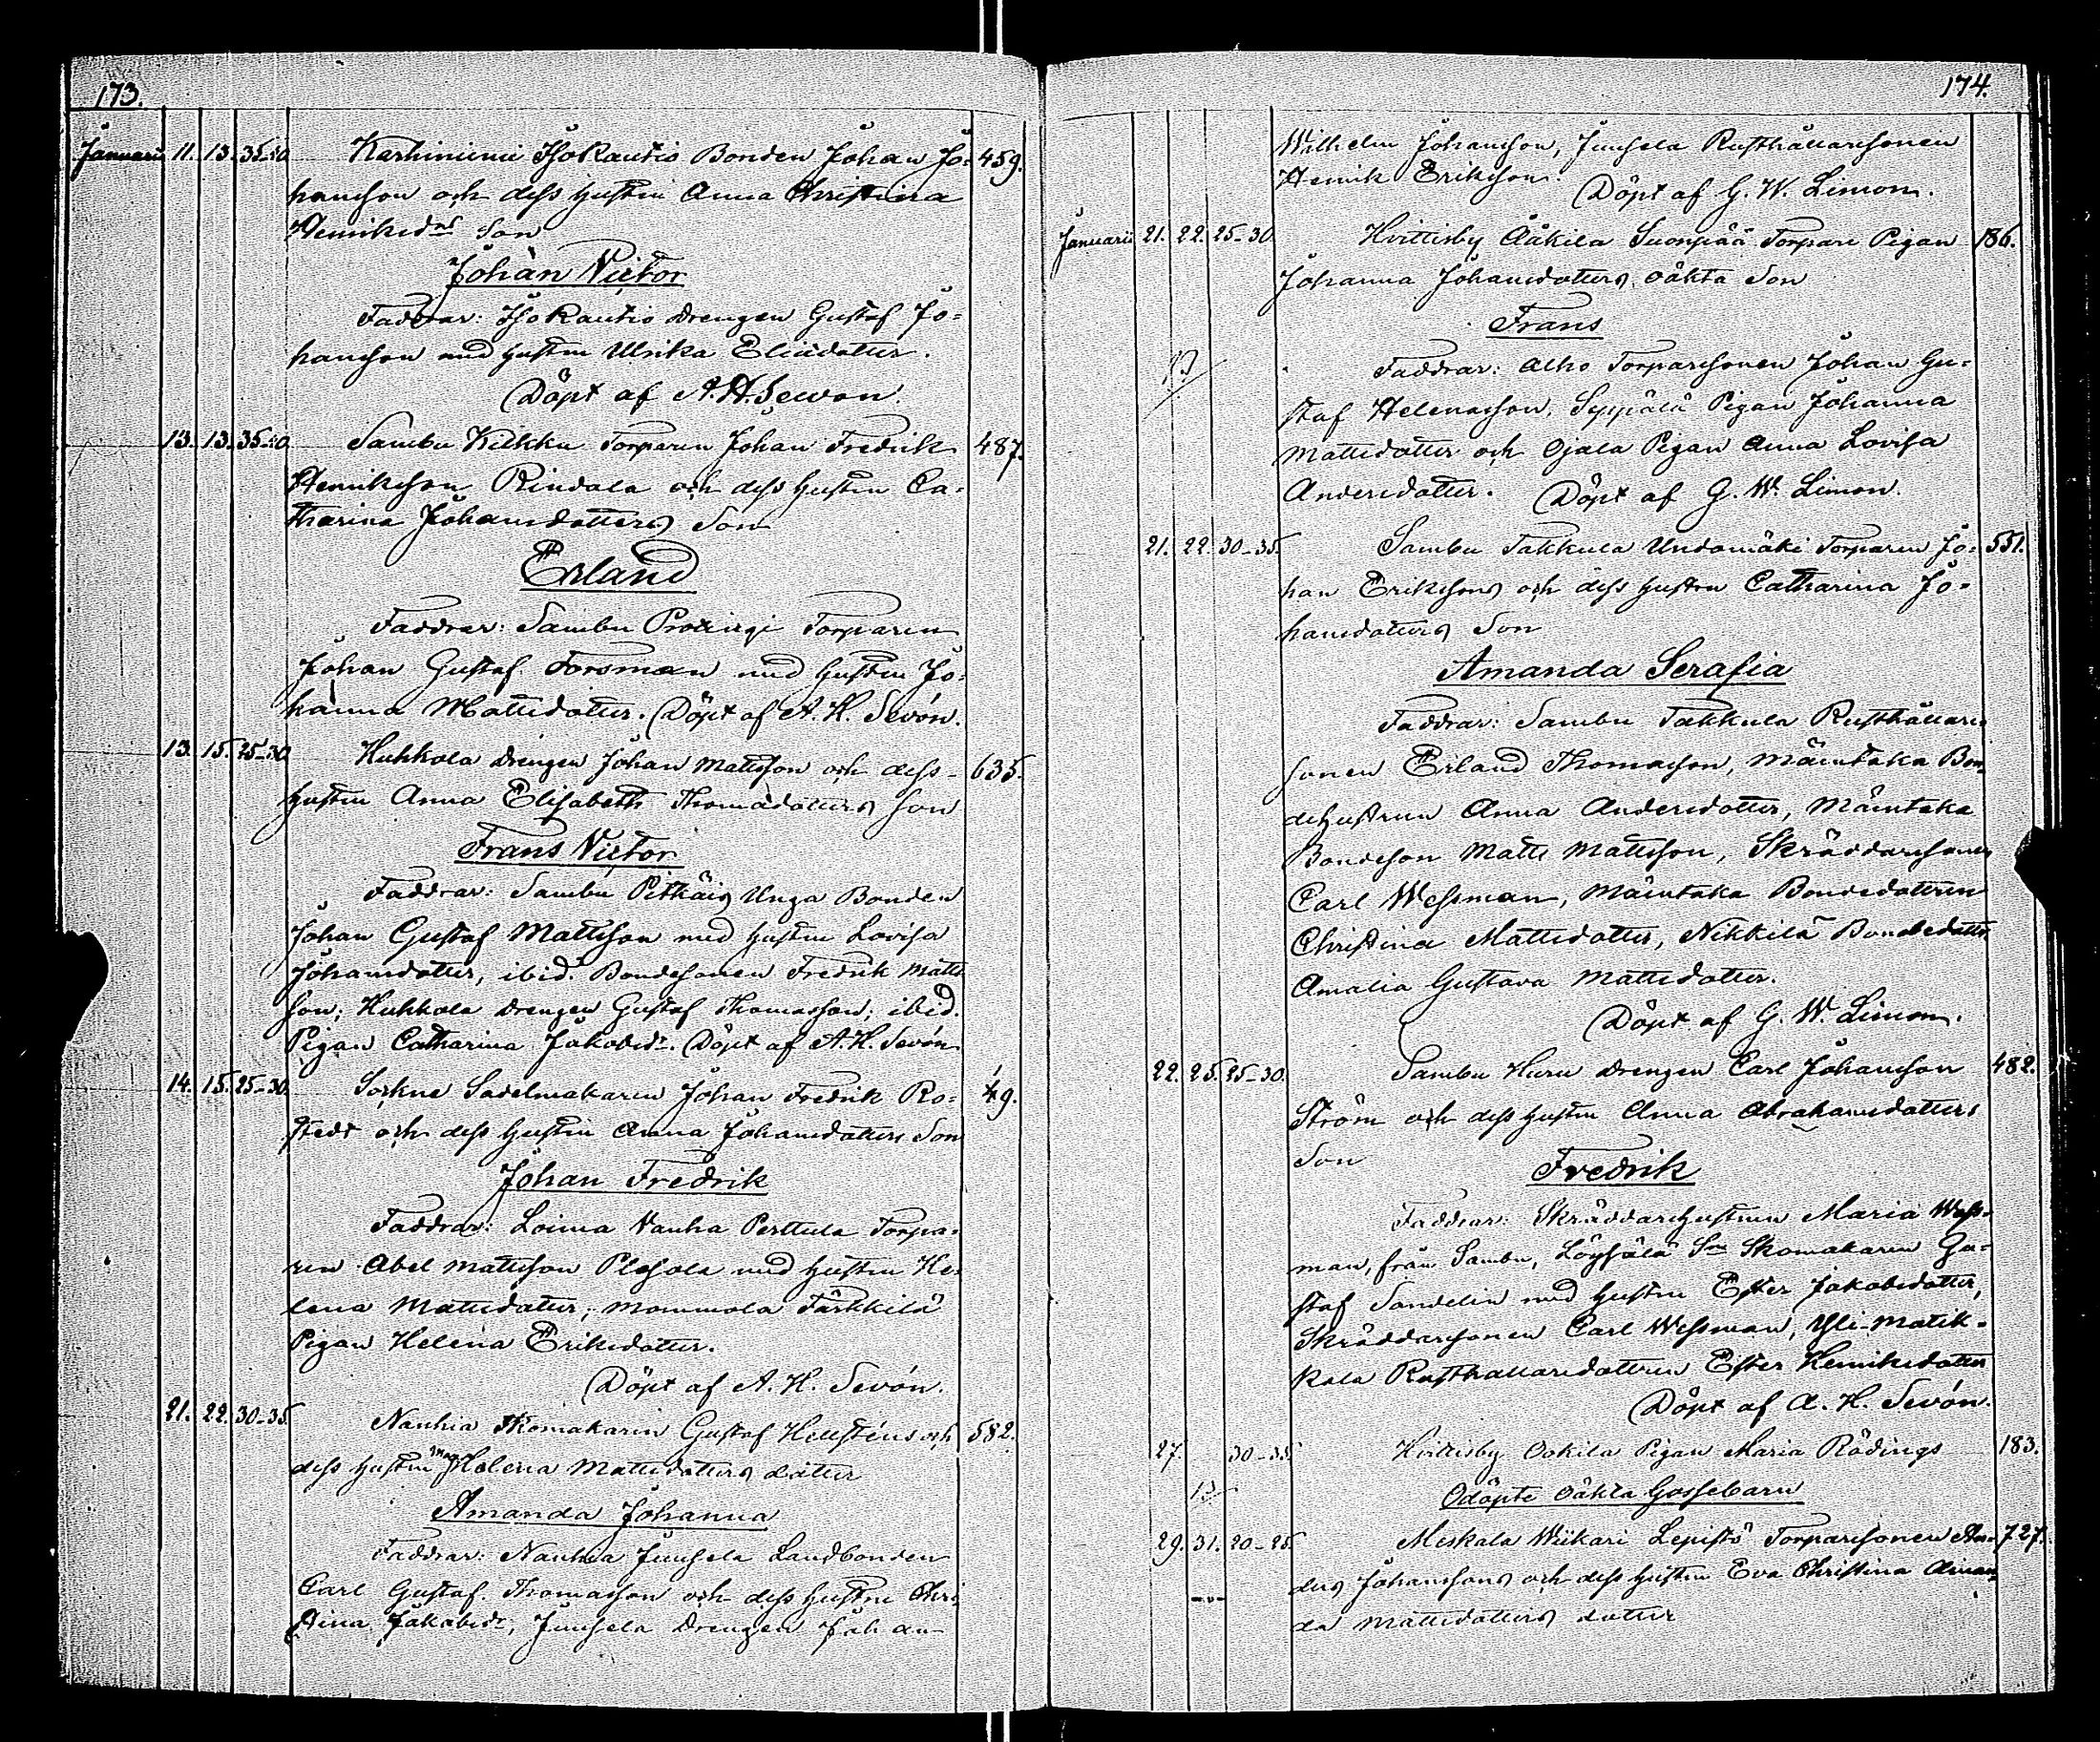 173.
Januarii 11. 13. 35-40 Karhiniemi Isokautio Bonden Johan Jo= 459.
hansson och dess hustru Anna Christina
Henriksdrs Son
Johan Victor
Faddrar: IsoKautio drengen Gustaf Jo=
hansson med hustru Ulrika Eliædotter.
Döpt af A. H. Sevon.
13. 13. 35-40 Sambu Kilkku Torparen Johan Fredrik 487.
Henriksson Rindala och dess hustru Ca=
tharina Johansdotters Son
Erland
Faddrar: Sambu Torparen
Johan Gustaf Forsman med hustru Jo=
hanna Mattsdotter. Döpt af A. H. Sevón.
13. 15. 25-30 Huhkola drengen Johan Mattsson och dess 635.
hustru Anna Elisabeth Thomædotters son
Frans Victor
Faddrar: Sambu Pitkäis Unga Bonden
Johan Gustaf Mattsson med hustru Lovisa
Johansdotter, ibid. Bondesonen Fredrik Matts
son; Huhkola drengen Gustaf Thomasson; ibid.
Pigan Catharina Jakobsdr. Döpt af A. H. Sevón
14. 15. 25-30. Sorkne Sadelmakaren Johan Fredrik Ro= 49.
stedt och dess hustru Anna Johansdotters Son
Johan Fredrik
Faddrar: Loima Vanha Perttula Torpa=
ren Abel Mattsson Plosola med hustru He=
lena Mattsdotter, Mommola Färkkilä
Pigan Helena Eriksdotter.
Döpt af A. H. Sevón.
21. 22. 30-35. Nanhia Skomakaren Gustaf Hellsténs och 582.
dess hustru Helena Mattsdotters dotter
Amanda Johanna
Faddrar: Nanhia Junsela Landbonden
Carl Gustaf Thomasson och dess hustru Chri
stina Jakobsdr, Junsela Drengen Johan
174.
Wilhelm Johansson, Junsela Rusthållarsonen
Henrik Eriksson. Döpt af G. W. Limon.
Januarii 21. 22. 25-30 Hvittisby Ååkila Suonpää Torpare Pigan 186.
Johanna Johansdotters oäkta Son
Frans
Faddrar: Alho Torparesonen Johan Gu=
staf Helenasson, Seppälä Pigan Johanna
Mattsdotter och Ojala Pigan Anna Lovisa
Andersdotter. Döpt af G. W. Limon.
21. 22. 30-35. Sambu Takkula Undamäki Torparen Jo= 551.
han Erikssons och dess hustru Catharina Jo=
hansdotters Son
Amanda Serafia
Faddrar: Sambu Takkula Rusthållare
sonen Erland Thomasson, Mäentaka Bon=
dehustrun Anna Andersdotter, Mäentaka
Bondeson Matts Mattsson, Skräddaresonen
Carl Wessman, Mäentaka Bondedottren
Christina Mattsdotter, Nikkilä Bondedotter
Amalia Gustava Mattsdotter.
Döpt af G. W. Limon.
22. 25. 25-30. Sambu Huru drengen Carl Johansson 482.
Ström och dess hustru Anna Abrahamsdotters
Son
Fredrik
Faddrar: Skräddarehustrun Maria Wess=
man, från Sambu, Löysälä Skomakaren Gu=
staf Sandelin med hustru Ester Jakobsdotter,
Skräddaresonen Carl Wessman, Yli-Matik=
kala Rusthållaredottren Ester Henriksdotter
Döpt af A. H. Sevón.
27. 30-35. Hvittisby Ookila Pigan Maria Rödings 183.
Odöpte oäkta Gossebarn
29. 31. 20-25. Meskala Wiikari Lepistö Torparesonen An= 727.
ders Johanssons och dess hustru Eva Christina Aman=
da Mattsdotters dotter